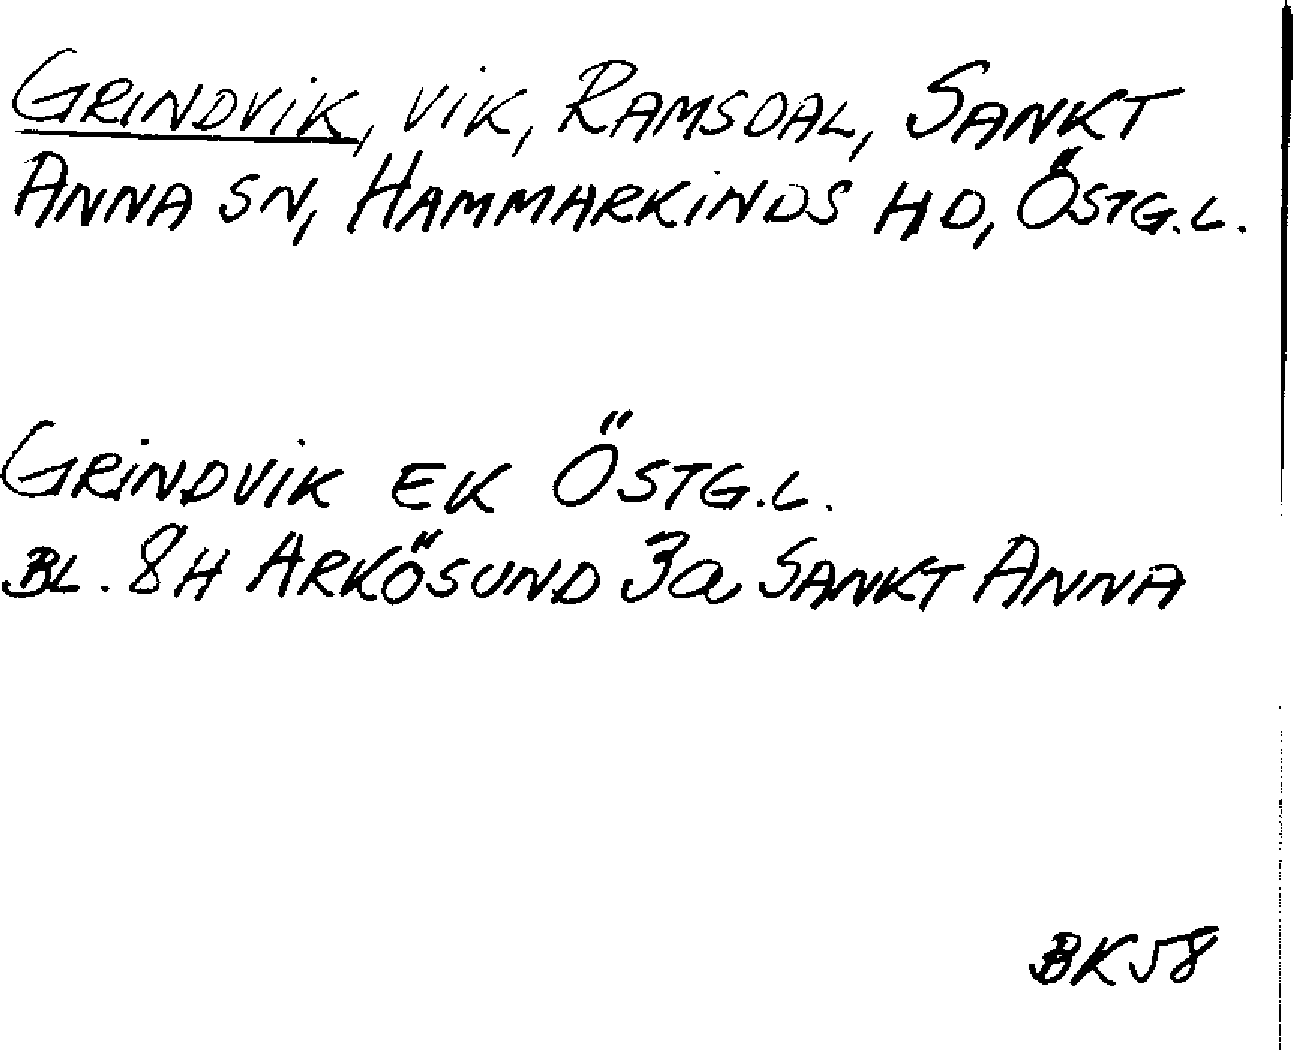 GRINDVIK, VIK, RAMSDAL, SANKT
ANNA SN, HAMMARKINDS HD, ÖSTG.L.
GRINDVIK EK ÖSTG.L.
BL. 8H ARKÖSUND 3a SANKT ANNA
BK58